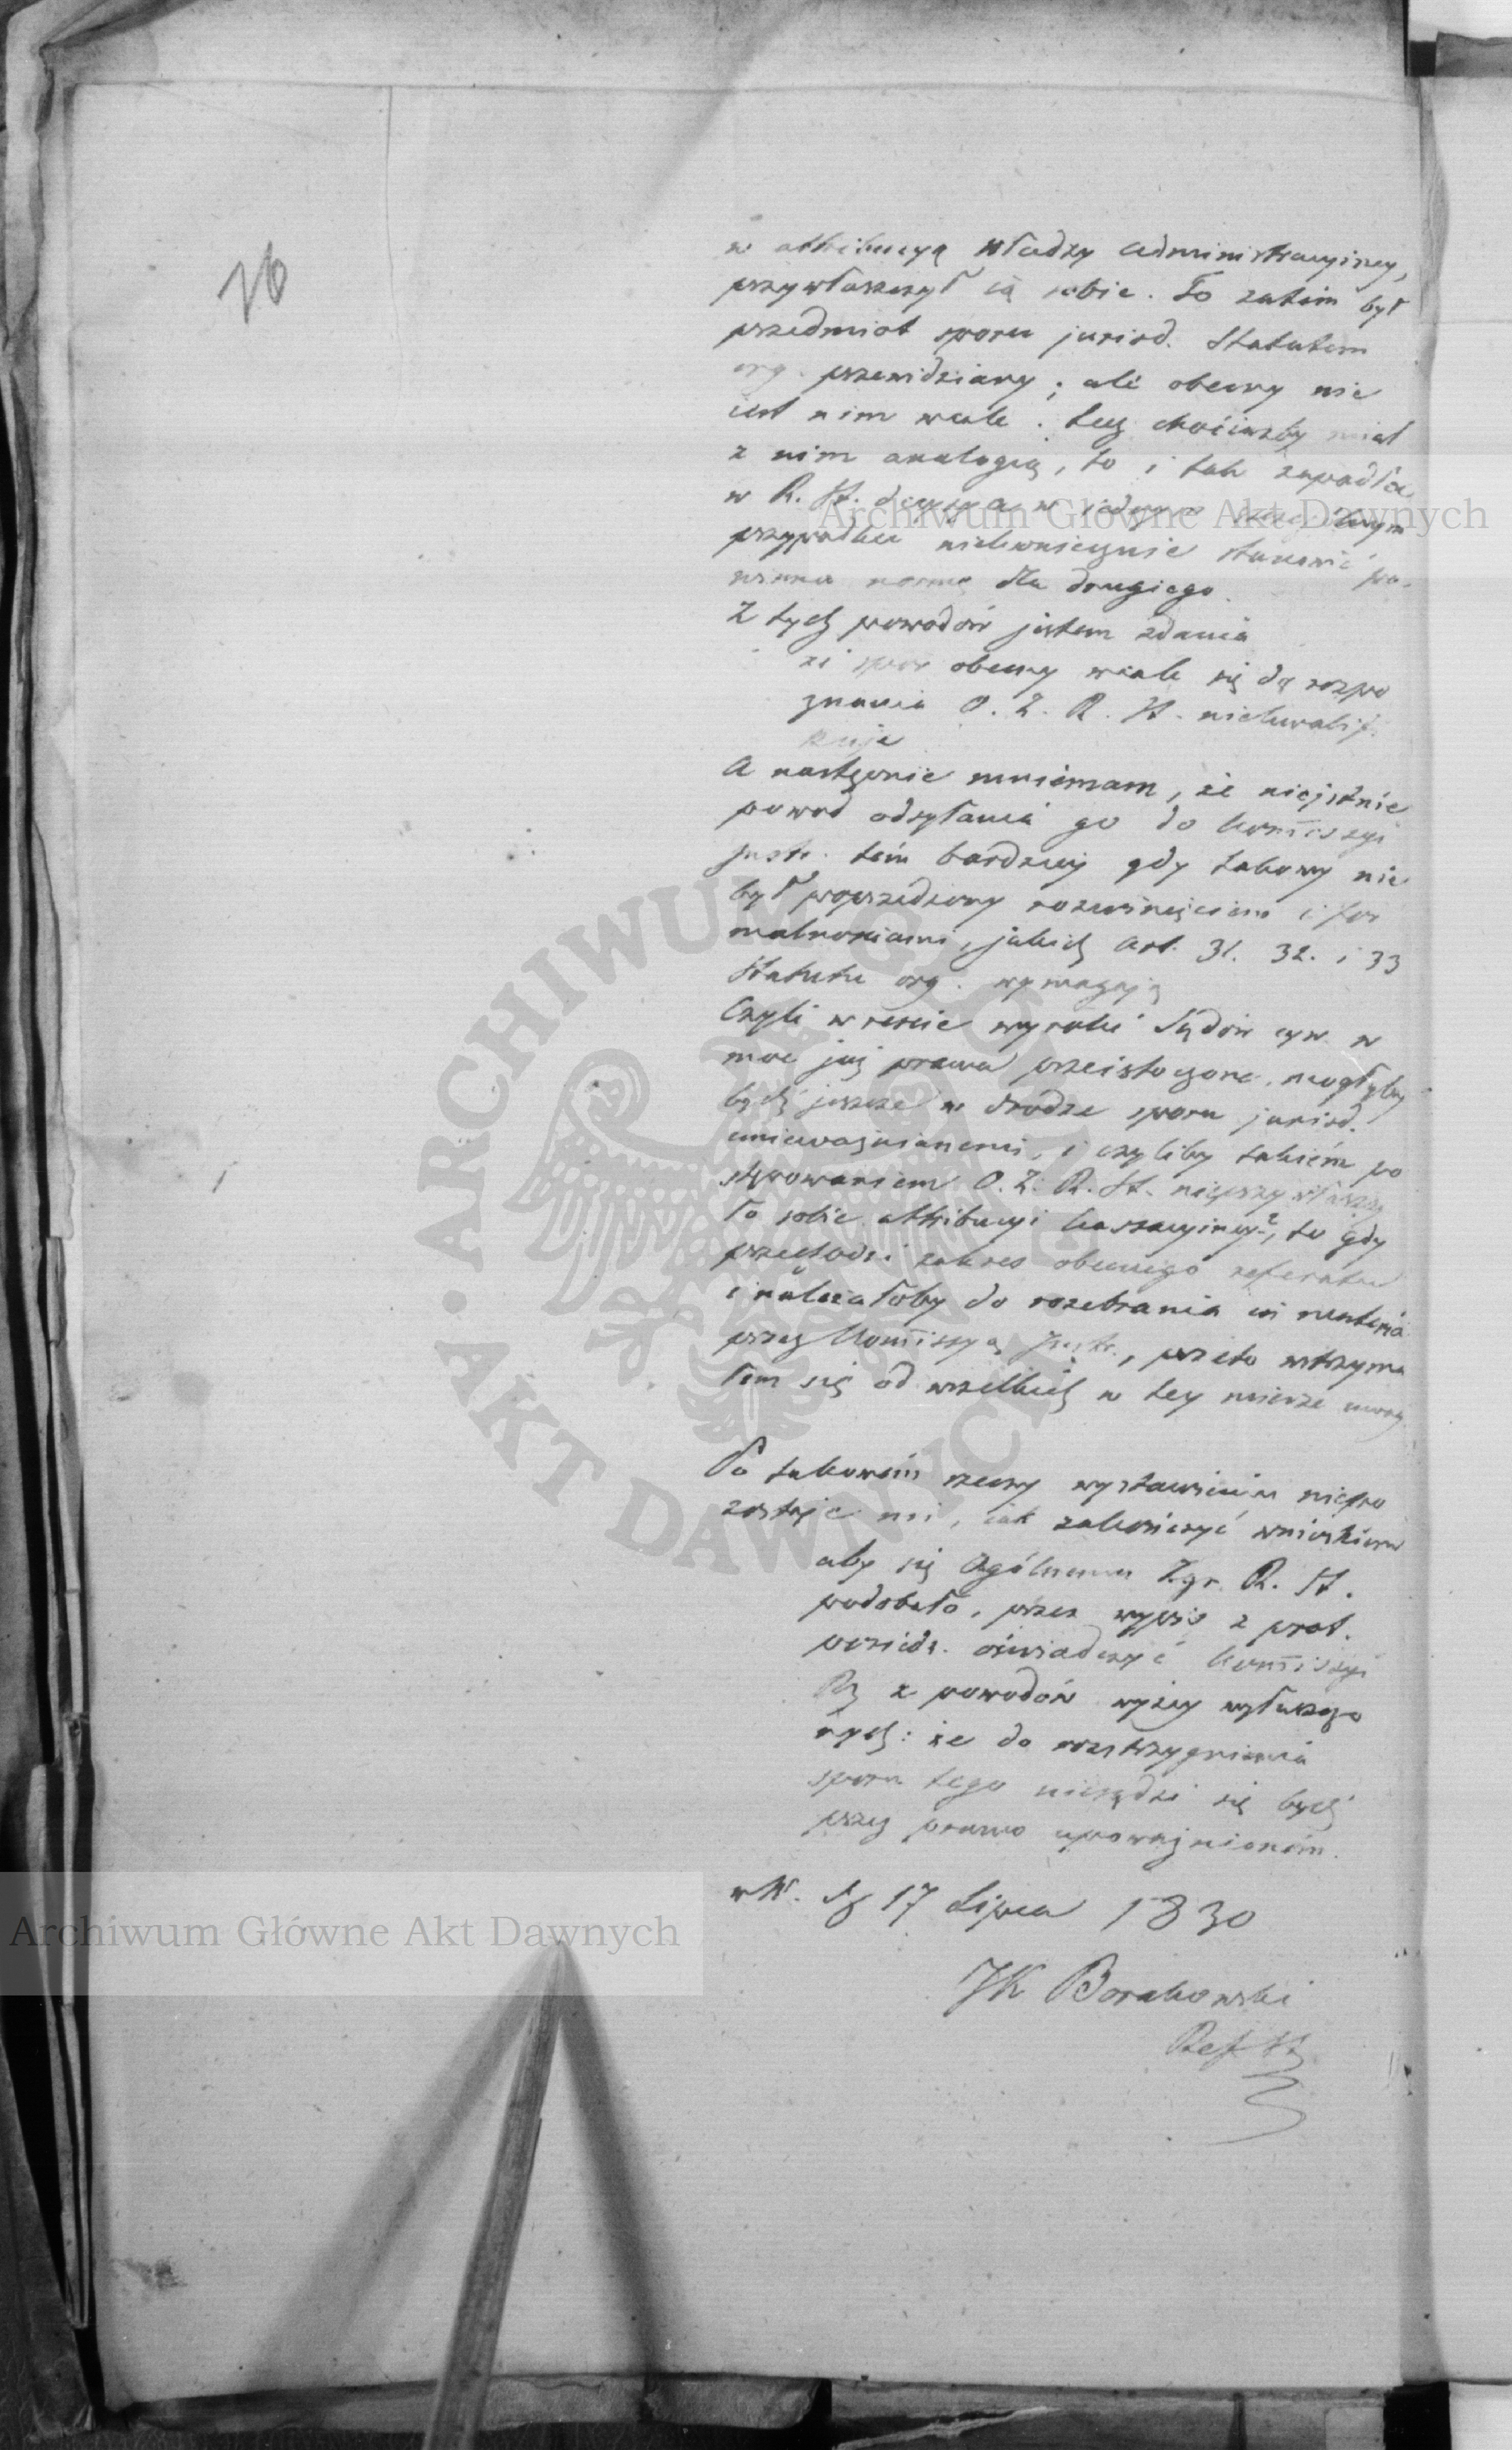 76
w attribucyą władzy administracyiney,
przywłaszczył ią sobie. To zatem był
przedmiot sporu jurisd. Statutem
org. przewidziany; ale obecny nie
iest nim wcale. Lecz chociażby miał
z nim analogią, to i tak zapadła
w R. St. decyzya w jednym
przypadku niekoniecznie stanowić po-
winna normę dla drugiego.
Z tych powodów jestem zdania
że spor obecny wcale się do rozpo
znania O. Z. R. St. niekwalifi
kuje
A następnie mniemam, że nieistnie
powod odsyłania go do Kommissyi
Justr. tém bardziey gdy takowy nie
był poprzedzony rozwinięciem i for
malnościami, jakich Art. 31. 32. i 33
Statutu org. wymagają
Czyli wreście wyroki Sądów cyw. w
moc już prawa przeistoczone, mogłyby
bydź jeszcze w drodze sporu jurisd.
unieważnianemi, i czyliby takiém po
stępowaniem O. Z. R. St. nieprzywłaszczy
ło sobie attribucyi kassacyiney?, to gdy
przechodzi zakres obecnego referatu
i należałoby do rozebrania
przez Kommissyą Justr., przeto wstrzyma
łem się od wszelkich w tey mierze uwag.
Po takowém rzeczy wystawieniu niepo
zostaje mi, iak zakończyć wnioskiem
aby się Ogólnemu Zgr. R. St.
podobało, przez wypis z prot.
posiedz. oświadczyć Kommissyi
Rz z powodów wyżey wyłuszczo
nych: że do rozstrzygnienia
sporu tego niesądzi się bydź
przez prawo upoważnioném.
w W. d 17 Lipca 1830
JK Borakowski
Ref St
Archiwum Główne Akt Dawnych
Archiwum Główne Akt Dawnych
ARCHIWUM GŁÓWNE
AKT DAWNYCH